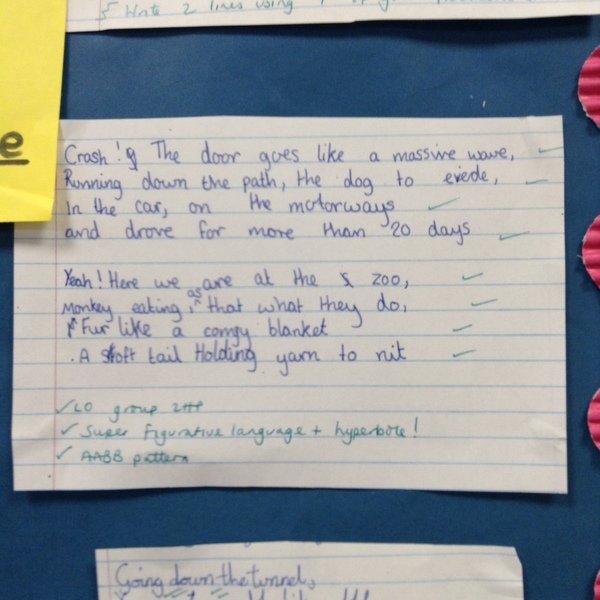 Write 2 lines using
e
Crash! The door goes like a massive wave,
Running down the path, the dog to evede,
In the car, on the motorways
and drove for more than 20 days
Yeah! Here we are at the zoo,
Monkey eating, as that what they do,
Fur like a comgy blanket
. A soft tail Holding yarn to nit
✓ LO group
✓ Super figurative language + hyperbole!
✓ AABB pattern
Going down the tunnel,